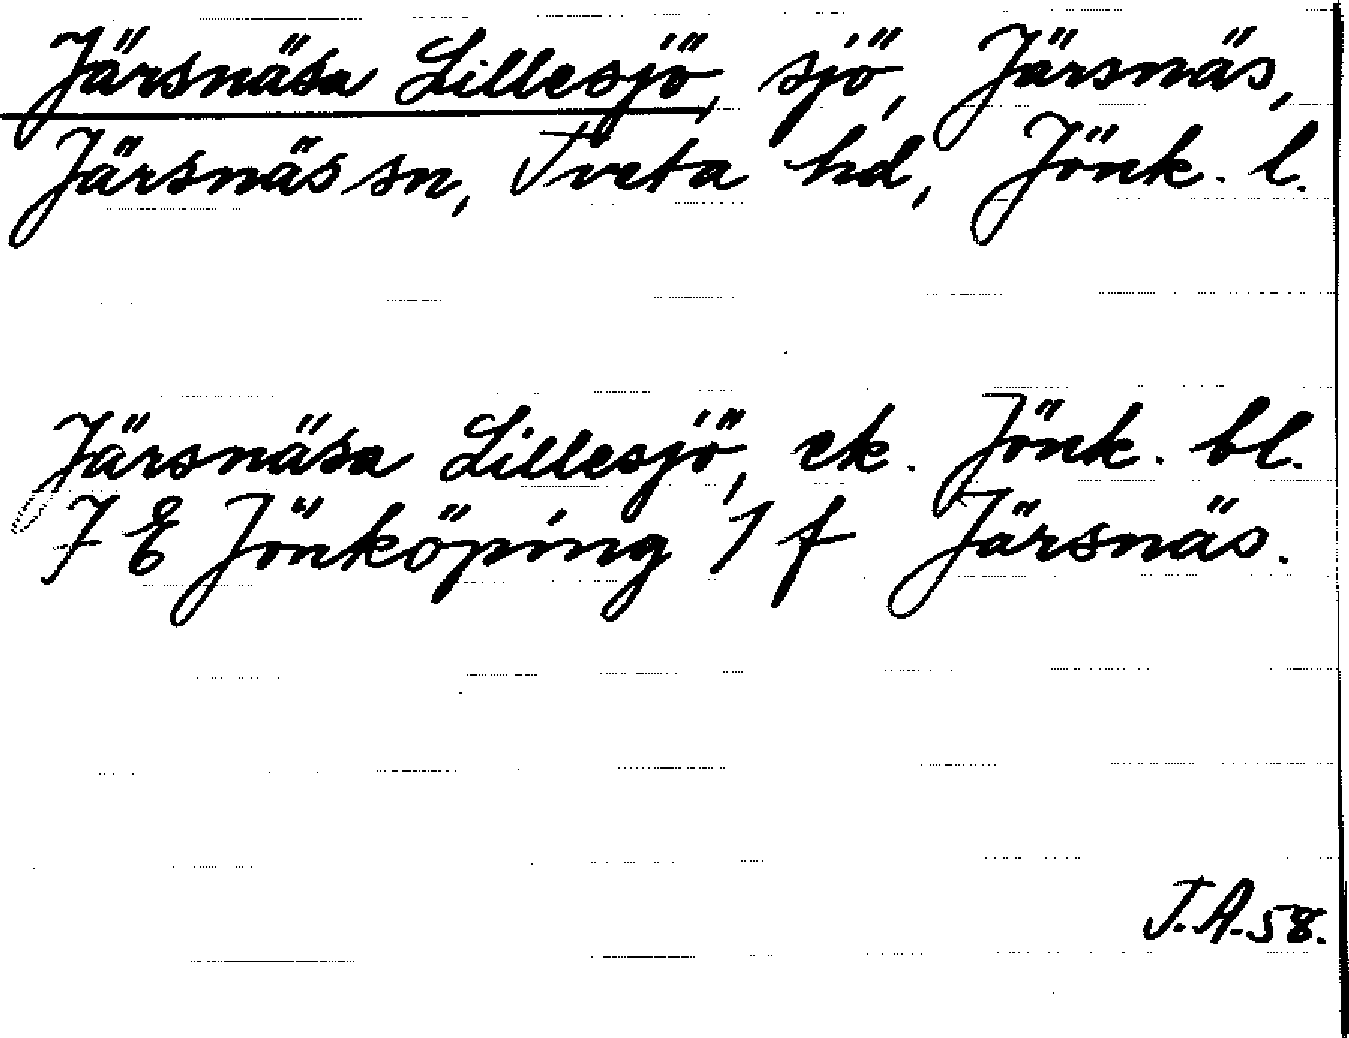 Järsnäsa Lillesjö, sjö, Järsnäs,
Järsnäs sn, Tveta hd, Jönk. l.
Järsnäsa Lillesjö, ek. Jönk. bl.
7 E Jönköping 1 f Järsnäs.
J.A.58.